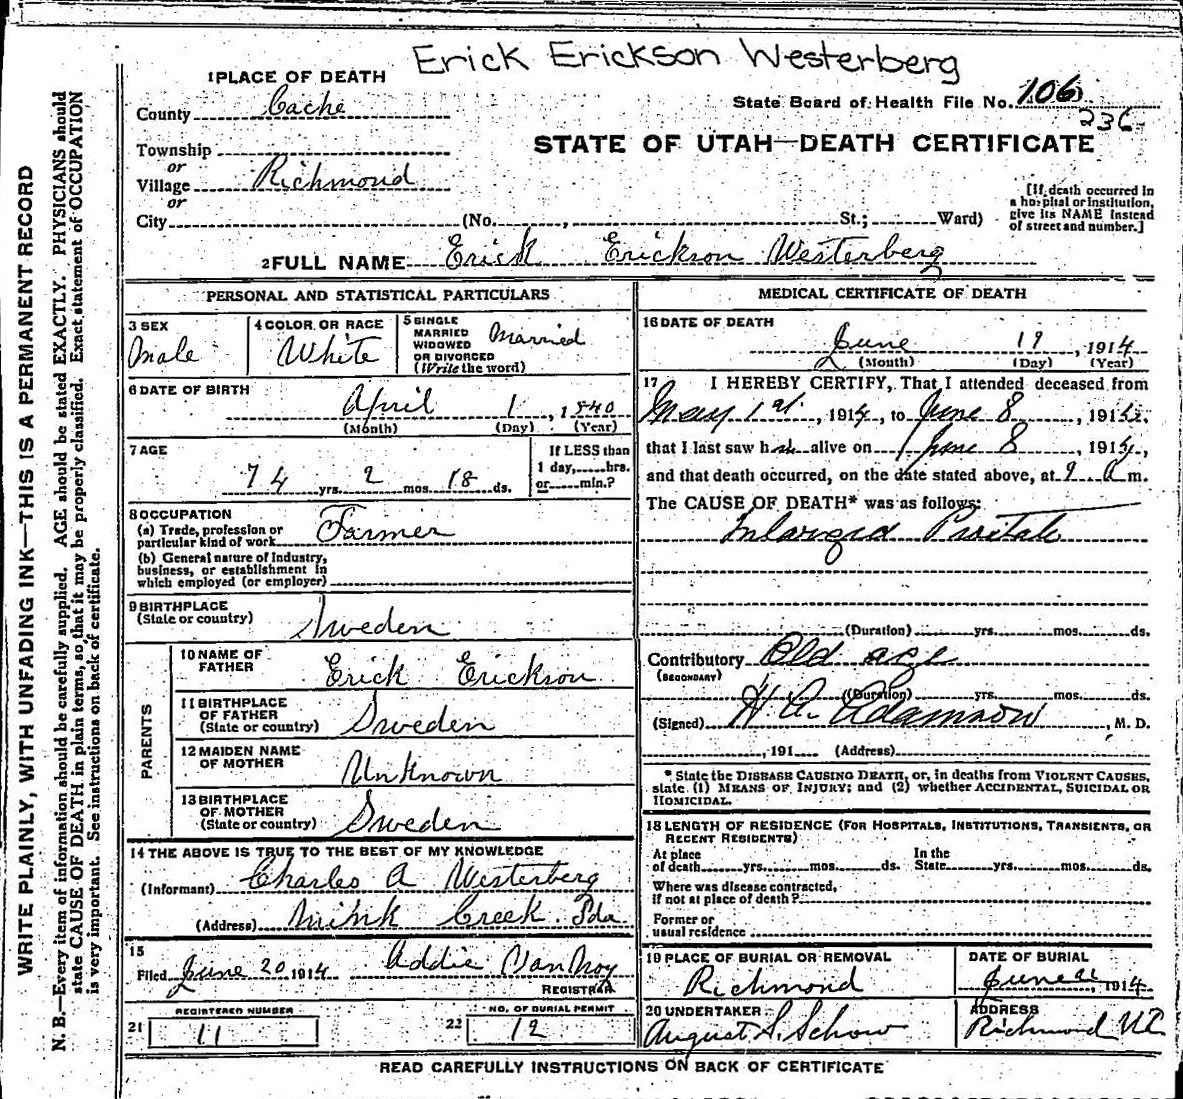 Erick Erickson Westerberg
1 PLACE OF DEATH
County Cache
State Board of Health File No. 106
236
Township
or
Village Richmond
or
City (No. , St.; Ward)
STATE OF UTAH—DEATH CERTIFICATE
[If death occurred in
a hospital or institution,
give its NAME instead
of street and number.]
2 FULL NAME Erick Erickson Westerberg
PERSONAL AND STATISTICAL PARTICULARS
3 SEX
Male
4 COLOR OR RACE
White
5 SINGLE
MARRIED
WIDOWED
OR DIVORCED
(Write the word)
Married
6 DATE OF BIRTH
April 1, 1840
(Month) (Day) (Year)
7 AGE
74 yrs. 2 mos. 18 ds.
If LESS than
1 day,......hrs.
or......min.?
8 OCCUPATION
(a) Trade, profession or
particular kind of work Farmer
(b) General nature of Industry,
business, or establishment in
which employed (or employer)
9 BIRTHPLACE
(State or country) Sweden
PARENTS
10 NAME OF
FATHER Erick Erickson
11 BIRTHPLACE
OF FATHER
(State or country) Sweden
12 MAIDEN NAME
OF MOTHER Unknown
13 BIRTHPLACE
OF MOTHER
(State or country) Sweden
14 THE ABOVE IS TRUE TO THE BEST OF MY KNOWLEDGE
(Informant) Charles A Westerberg
(Address) Mink Creek. Ida.
15
Filed June 20, 1914 Addie Van Noy
REGISTRAR
REGISTERED NUMBER
21 11
NO. OF BURIAL PERMIT
22 12
MEDICAL CERTIFICATE OF DEATH
16 DATE OF DEATH
June 19, 1914
(Month) (Day) (Year)
17 I HEREBY CERTIFY, That I attended deceased from
May 1st, 1914, to June 8, 1914,
that I last saw him alive on June 8, 1914,
and that death occurred, on the date stated above, at 9 a m.
The CAUSE OF DEATH* was as follows:
Enlarged Prostate
(Duration) yrs. mos. ds.
Contributory Old age
(SECONDARY)
(Duration) yrs. mos. ds.
(Signed) H A. Adamson, M. D.
, 191 (Address)
* State the DISEASE CAUSING DEATH, or, in deaths from VIOLENT CAUSES,
state (1) MEANS OF INJURY; and (2) whether ACCIDENTAL, SUICIDAL OR
HOMICIDAL.
18 LENGTH OF RESIDENCE (FOR HOSPITALS, INSTITUTIONS, TRANSIENTS, OR
RECENT RESIDENTS)
At place In the
of death yrs. mos. ds. State yrs. mos. ds.
Where was disease contracted,
if not at place of death?
Former or
usual residence
19 PLACE OF BURIAL OR REMOVAL
Richmond
DATE OF BURIAL
June 21, 1914
20 UNDERTAKER
August S. Schow
ADDRESS
Richmond UT
READ CAREFULLY INSTRUCTIONS ON BACK OF CERTIFICATE
WRITE PLAINLY, WITH UNFADING INK—THIS IS A PERMANENT RECORD
N. B.—Every item of information should be carefully supplied. AGE should be stated EXACTLY. PHYSICIANS should
state CAUSE OF DEATH in plain terms, so that it may be properly classified. Exact statement of OCCUPATION
is very important. See instructions on back of certificate.